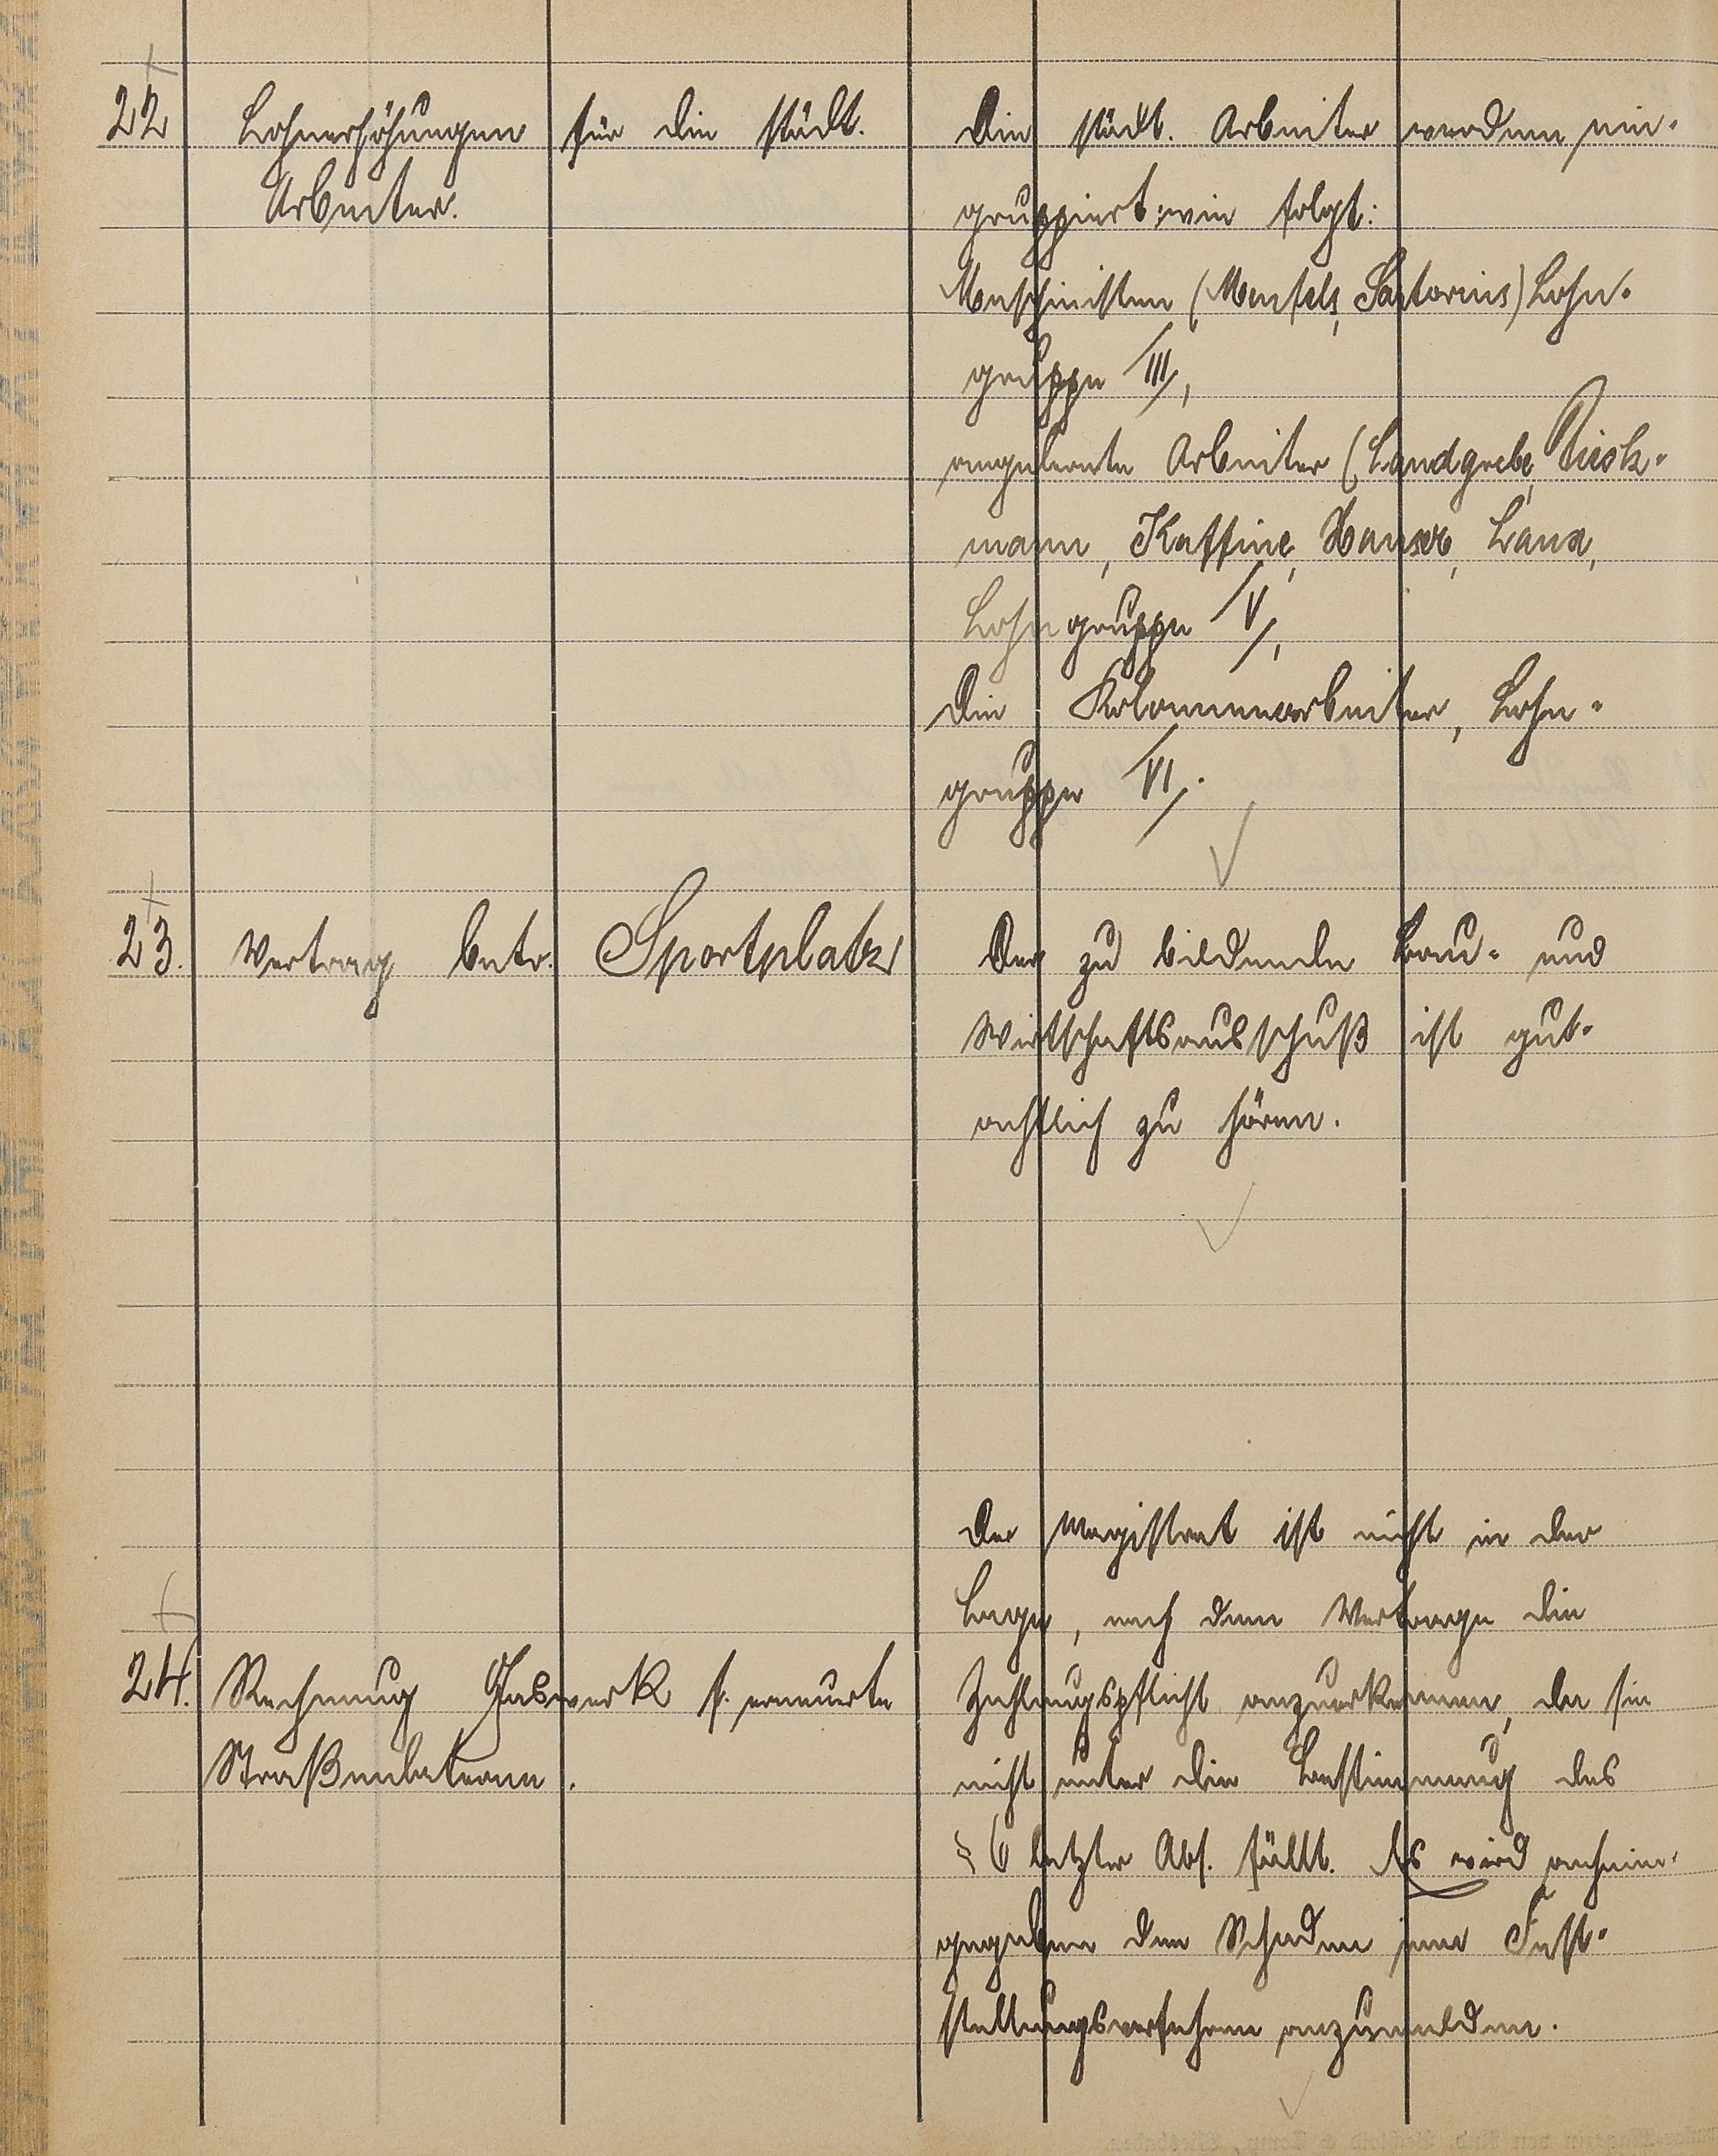 22 Lohnerhöhungen für die städt.
Arbeiter.
Die städt. Arbeiter werden ein-
gruppiert wie folgt:
Maschinisten (Menfels, Sartorius) Lohn-
gruppe III,
angelernte Arbeiter (Landgrebe, Dieck-
mann, Kuffine, Hauser, Laux,
Lohngruppe V,
Die Kolonnenarbeiter, Lohn-
gruppe VI.
23. Vertrag betr. Sportplatz
Der zu bildende Bau- und
Wirtschaftsausschuß ist gut-
achtlich zu hören.
24. Rechnung Gaswerk f. erneuerte
Straßenlaternen.
Der Magistrat ist nicht in der
Lage, nach dem Vertrage die
Zahlungspflicht anzuerkennen, da sie
nicht unter die Bestimmung des
§ 6 letzter Abs. fällt. Es wird anheim-
gegeben den Schaden im Fest-
stellungsverfahren anzumelden.